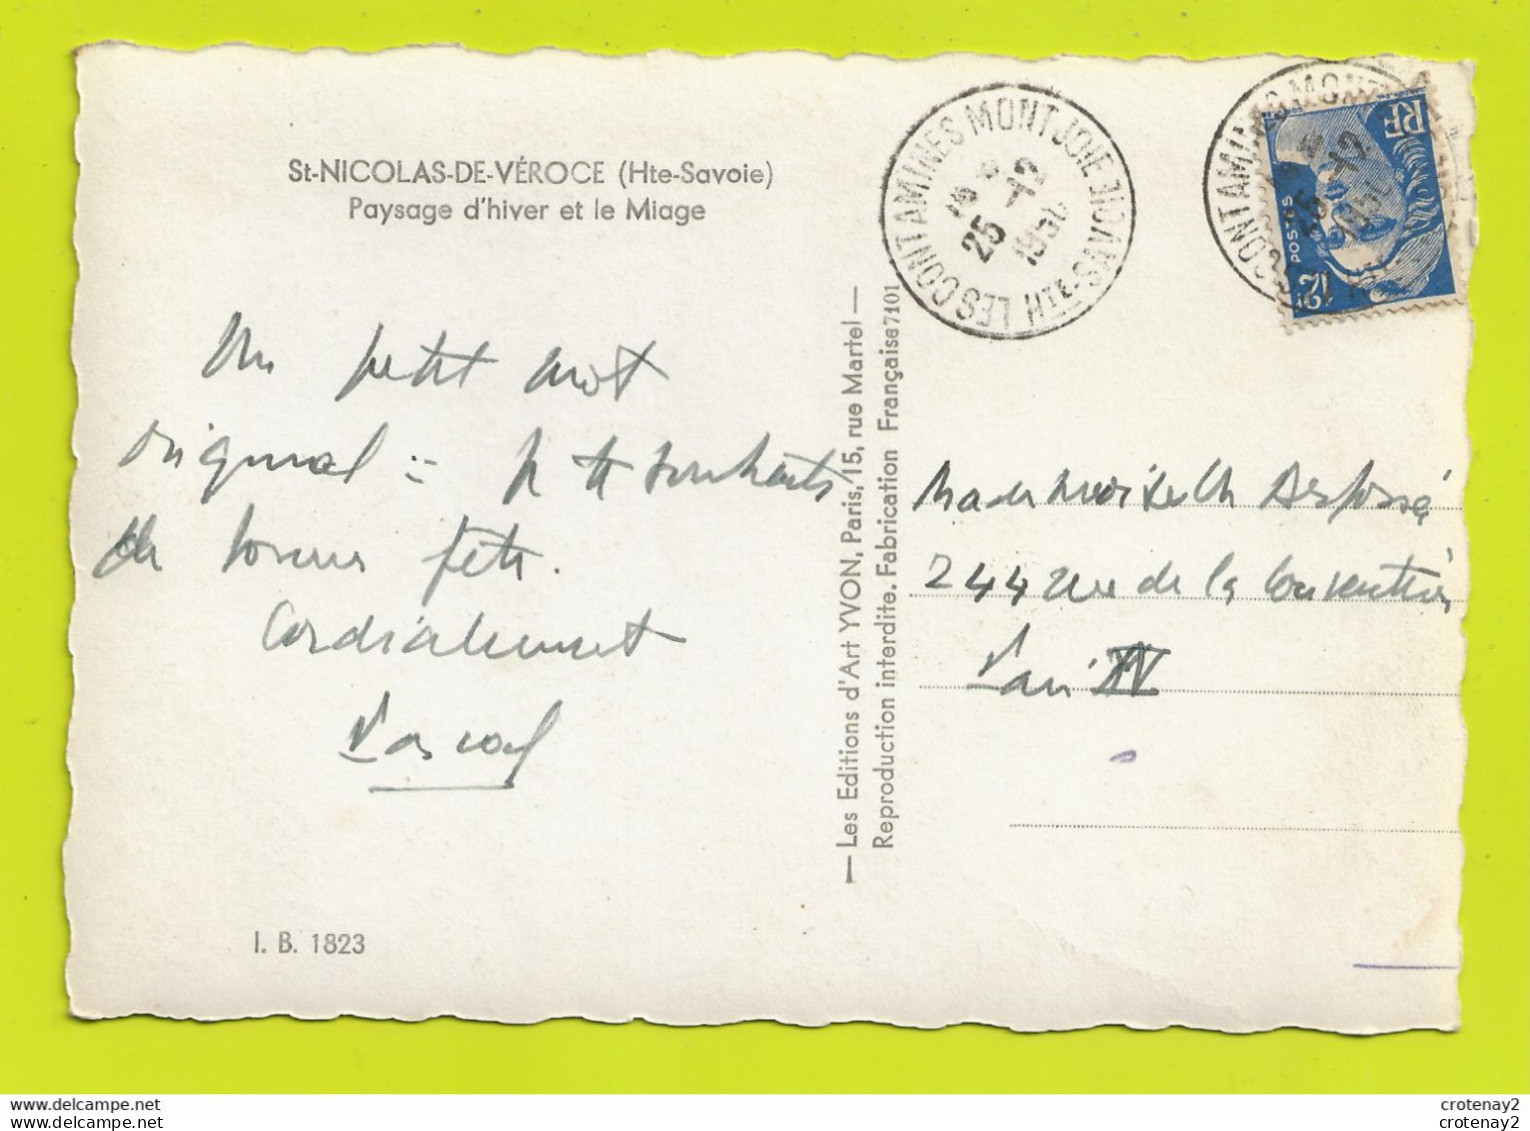 St-NICOLAS-DE-VÉROCE (Hte-Savoie)
Paysage d'hiver et le Miage
Un petit mot
original : je te souhaite
de bonne fête.
Cordialement
Pascal
I. B. 1823
— Les Editions d'Art YVON, Paris, 15, rue Martel —
Reproduction interdite. Fabrication Française 7101
LES CONTAMINES MONTJOIE HTE-SAVOIE
25 -12
1950
RF
POSTES
12F
Mademoiselle
244 rue de la Convention
Paris XV
crotenay2
crotenay2
www.delcampe.net
www.delcampe.net